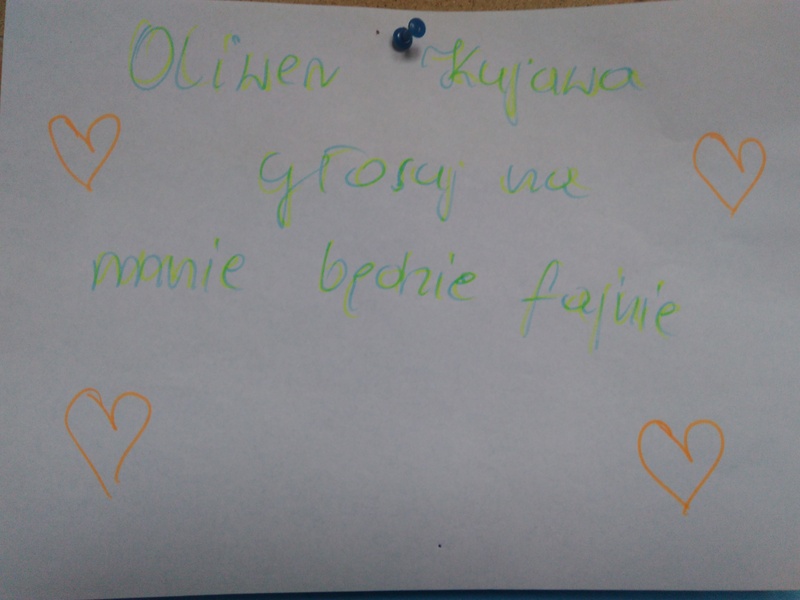 Oliwer Kujawa
głosuj na
mnie będzie fajnie